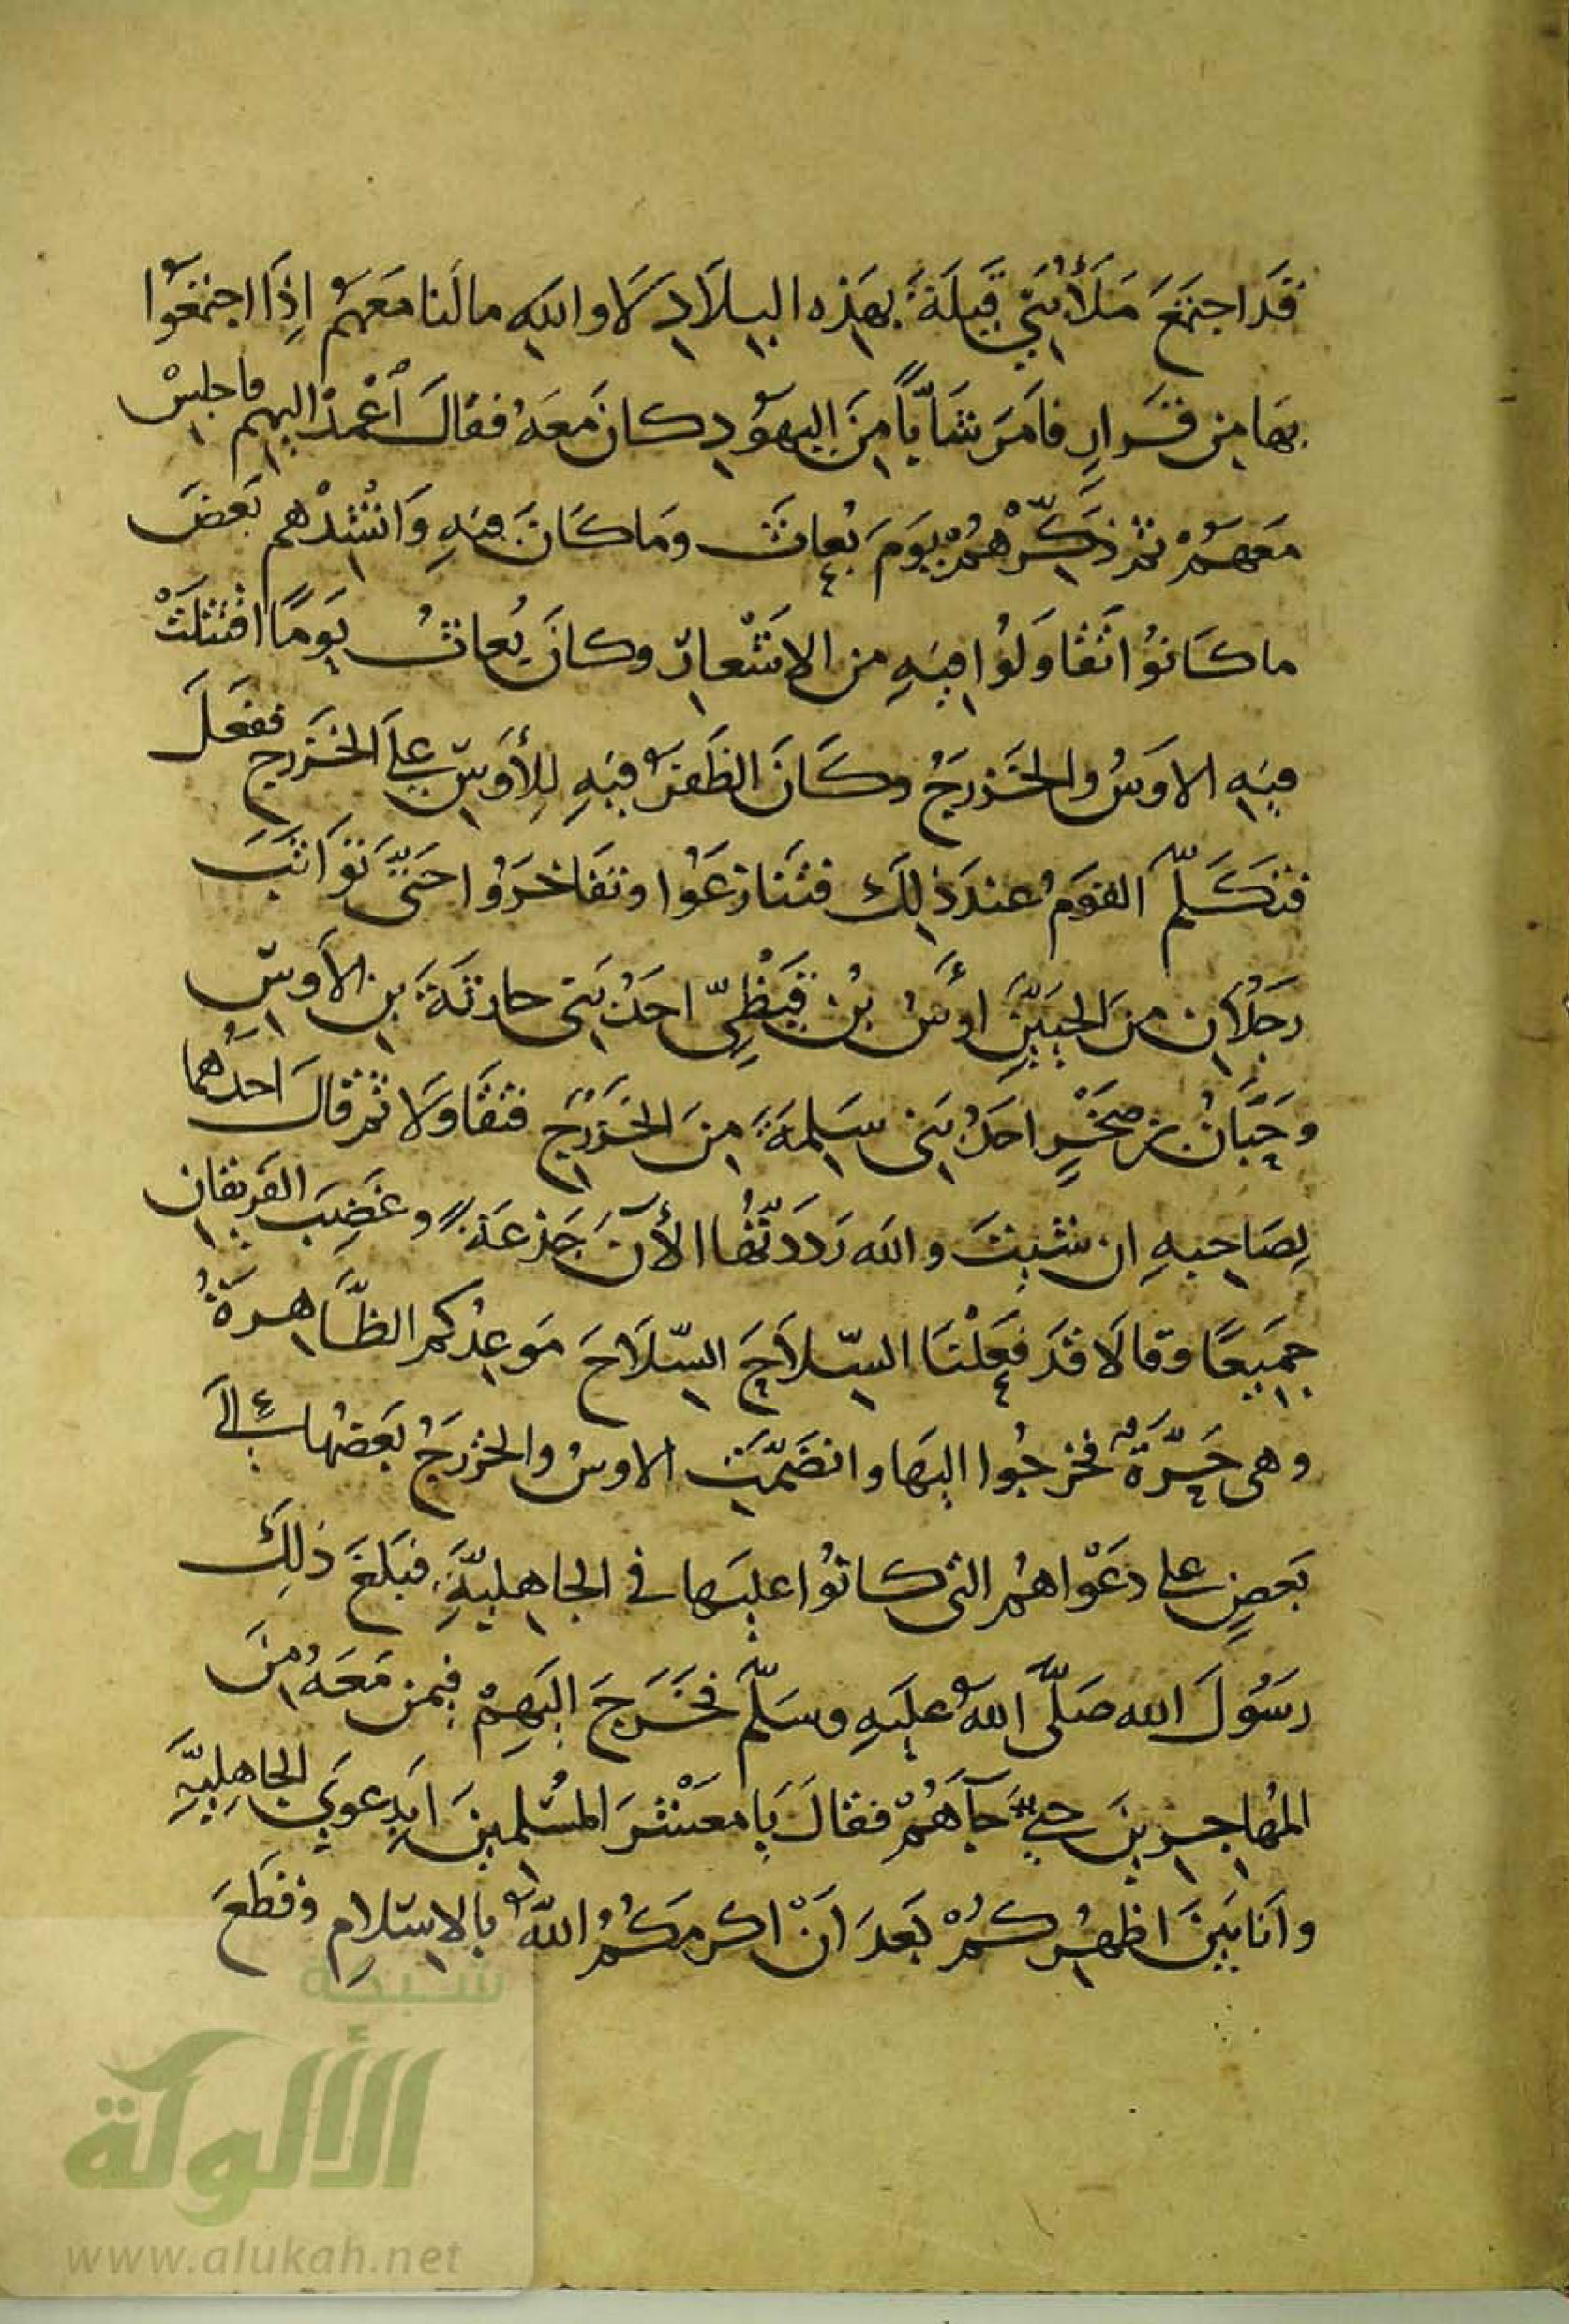 قَد اجتَمَعَ مَلَأُ بَنِي قَيلَةَ بِهَذِه البِلَادِ لَا واللهِ مالَنا مَعَهُمْ اِذَا اجتمَعُوا
بِهَا مِن قَرَارٍ فاَمَرَ شَابًّا مِنَ اليَهُودِ كانَ مَعَهُ فقالَ اعْمِدْ اليهِم فاجلِسْ
مَعَهُمْ ثم ذَكِّرْهُمْ يَومَ بُعاثَ ومَا كَانَ فيهِ وَانْشِدْهم بَعضَ
ما كَانُوا تَقَاوَلُوا فِيهِ مِن الاشْعارِ وكانَ بُعاثُ يَومًا اقْتتلَتْ
فيهِ الاَوسُ والخَزرَجُ وكَانَ الظَفَرُ فيهِ لِلأوَسِ علَى الخَزرج ففَعَلَ
فتَكَلَّمَ القَومُ عندَ ذٰلِكَ فتَنَازَعُوا وتَفَاخَرُوا حَتَّى تَوَاثَبَ
رَجُلَانِ مِنَ الحَيَّينِ أوَسُ بْنُ قَيظِيّ احَدُ بَنى حارثَةَ بنِ الأَوسِ
وجَبَّارُ بن صَخْرٍ احَدُ بَنى سَلِمَةَ مِنَ الخَزرَج فتَقَاوَلَا ثم قالَ احَدُهُما
لِصَاحِبِهِ ان شئِتَ والله رَدَدتُّهَا الأنَ جَذعَةً وغَضِبَ الفَرِيقانِ
جَمِيعًا وقالَا قَد فَعَلْنَا السِّلَاحَ السِّلَاحَ مَوعِدُكم الظَّاهِرَةُ
وهى حَرَّةٌ فخرجُوا اليهَا وانضَمَّتِ الاوسُ والخزرَجُ بَعضُها إلَى
بَعضٍ على دَعْوَاهُم التى كانُوا عليهَا في الجاهليَّةِ فبَلَغَ ذلِكَ
رَسُولَ الله صَلَّى اللهُ عليَهِ وسَلَّم فخَرَجَ اليَهِمْ فِيمن مَعَهُ مِنَ
المُهاجِرِينَ حتى جآهُمْ فقالَ يَا مَعْشَرَ المُسْلمينَ ابَدِعوَى الجَاهِلِيَّةِ
وانَا بَينَ اظهُرِكُمْ بَعدَ انْ اكرمَكُمُ اللهُ بالاِسلامِ وقَطَعَ
شبكة
الألوكة
www.alukah.net